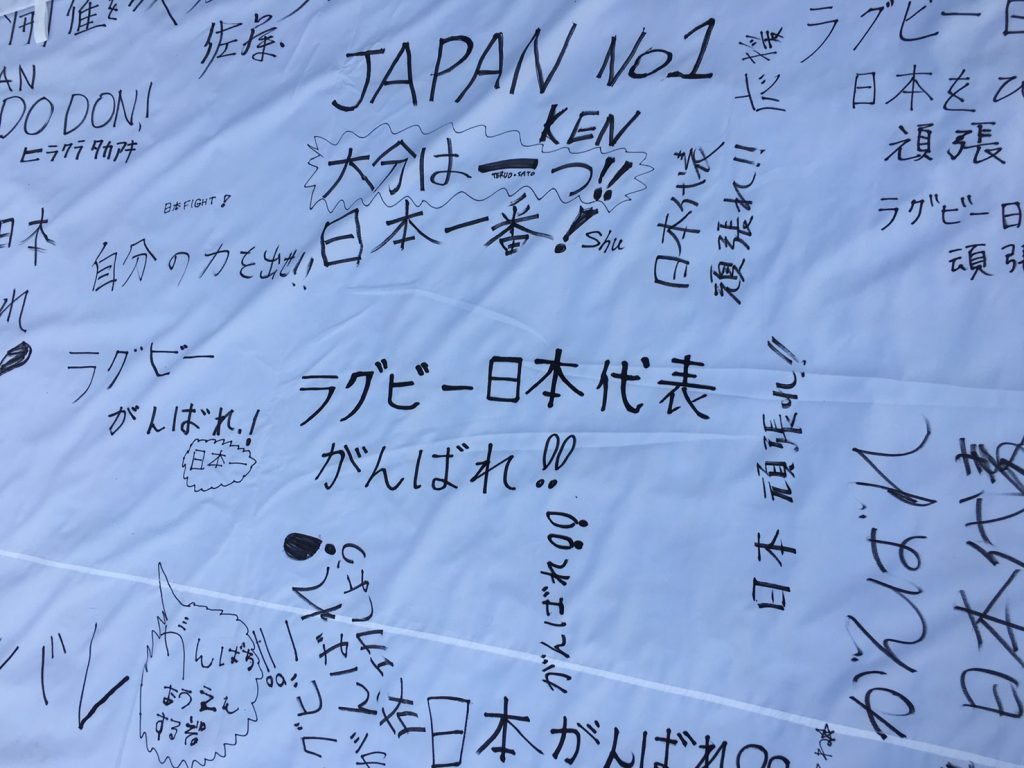 佐藤
JAPAN No1
KEN
DO DON!
ヒラクラ タカアキ
大分は一つ!!
TERUO.SATO
日本一番!
Shu
日本FIGHT!
日本
自分の力を出せ!!
日本代表
頑張れ!!
ラグビー日
日本をひ
頑張
ラグビー日
頑張
れ
ラグビー
がんばれ!
日本一
ラグビー日本代表
がんばれ!!
日本 頑張れ!!
がんばれ
日本代表
がんばれ!!
おうえん
する
がんばれ
日本がんばれ